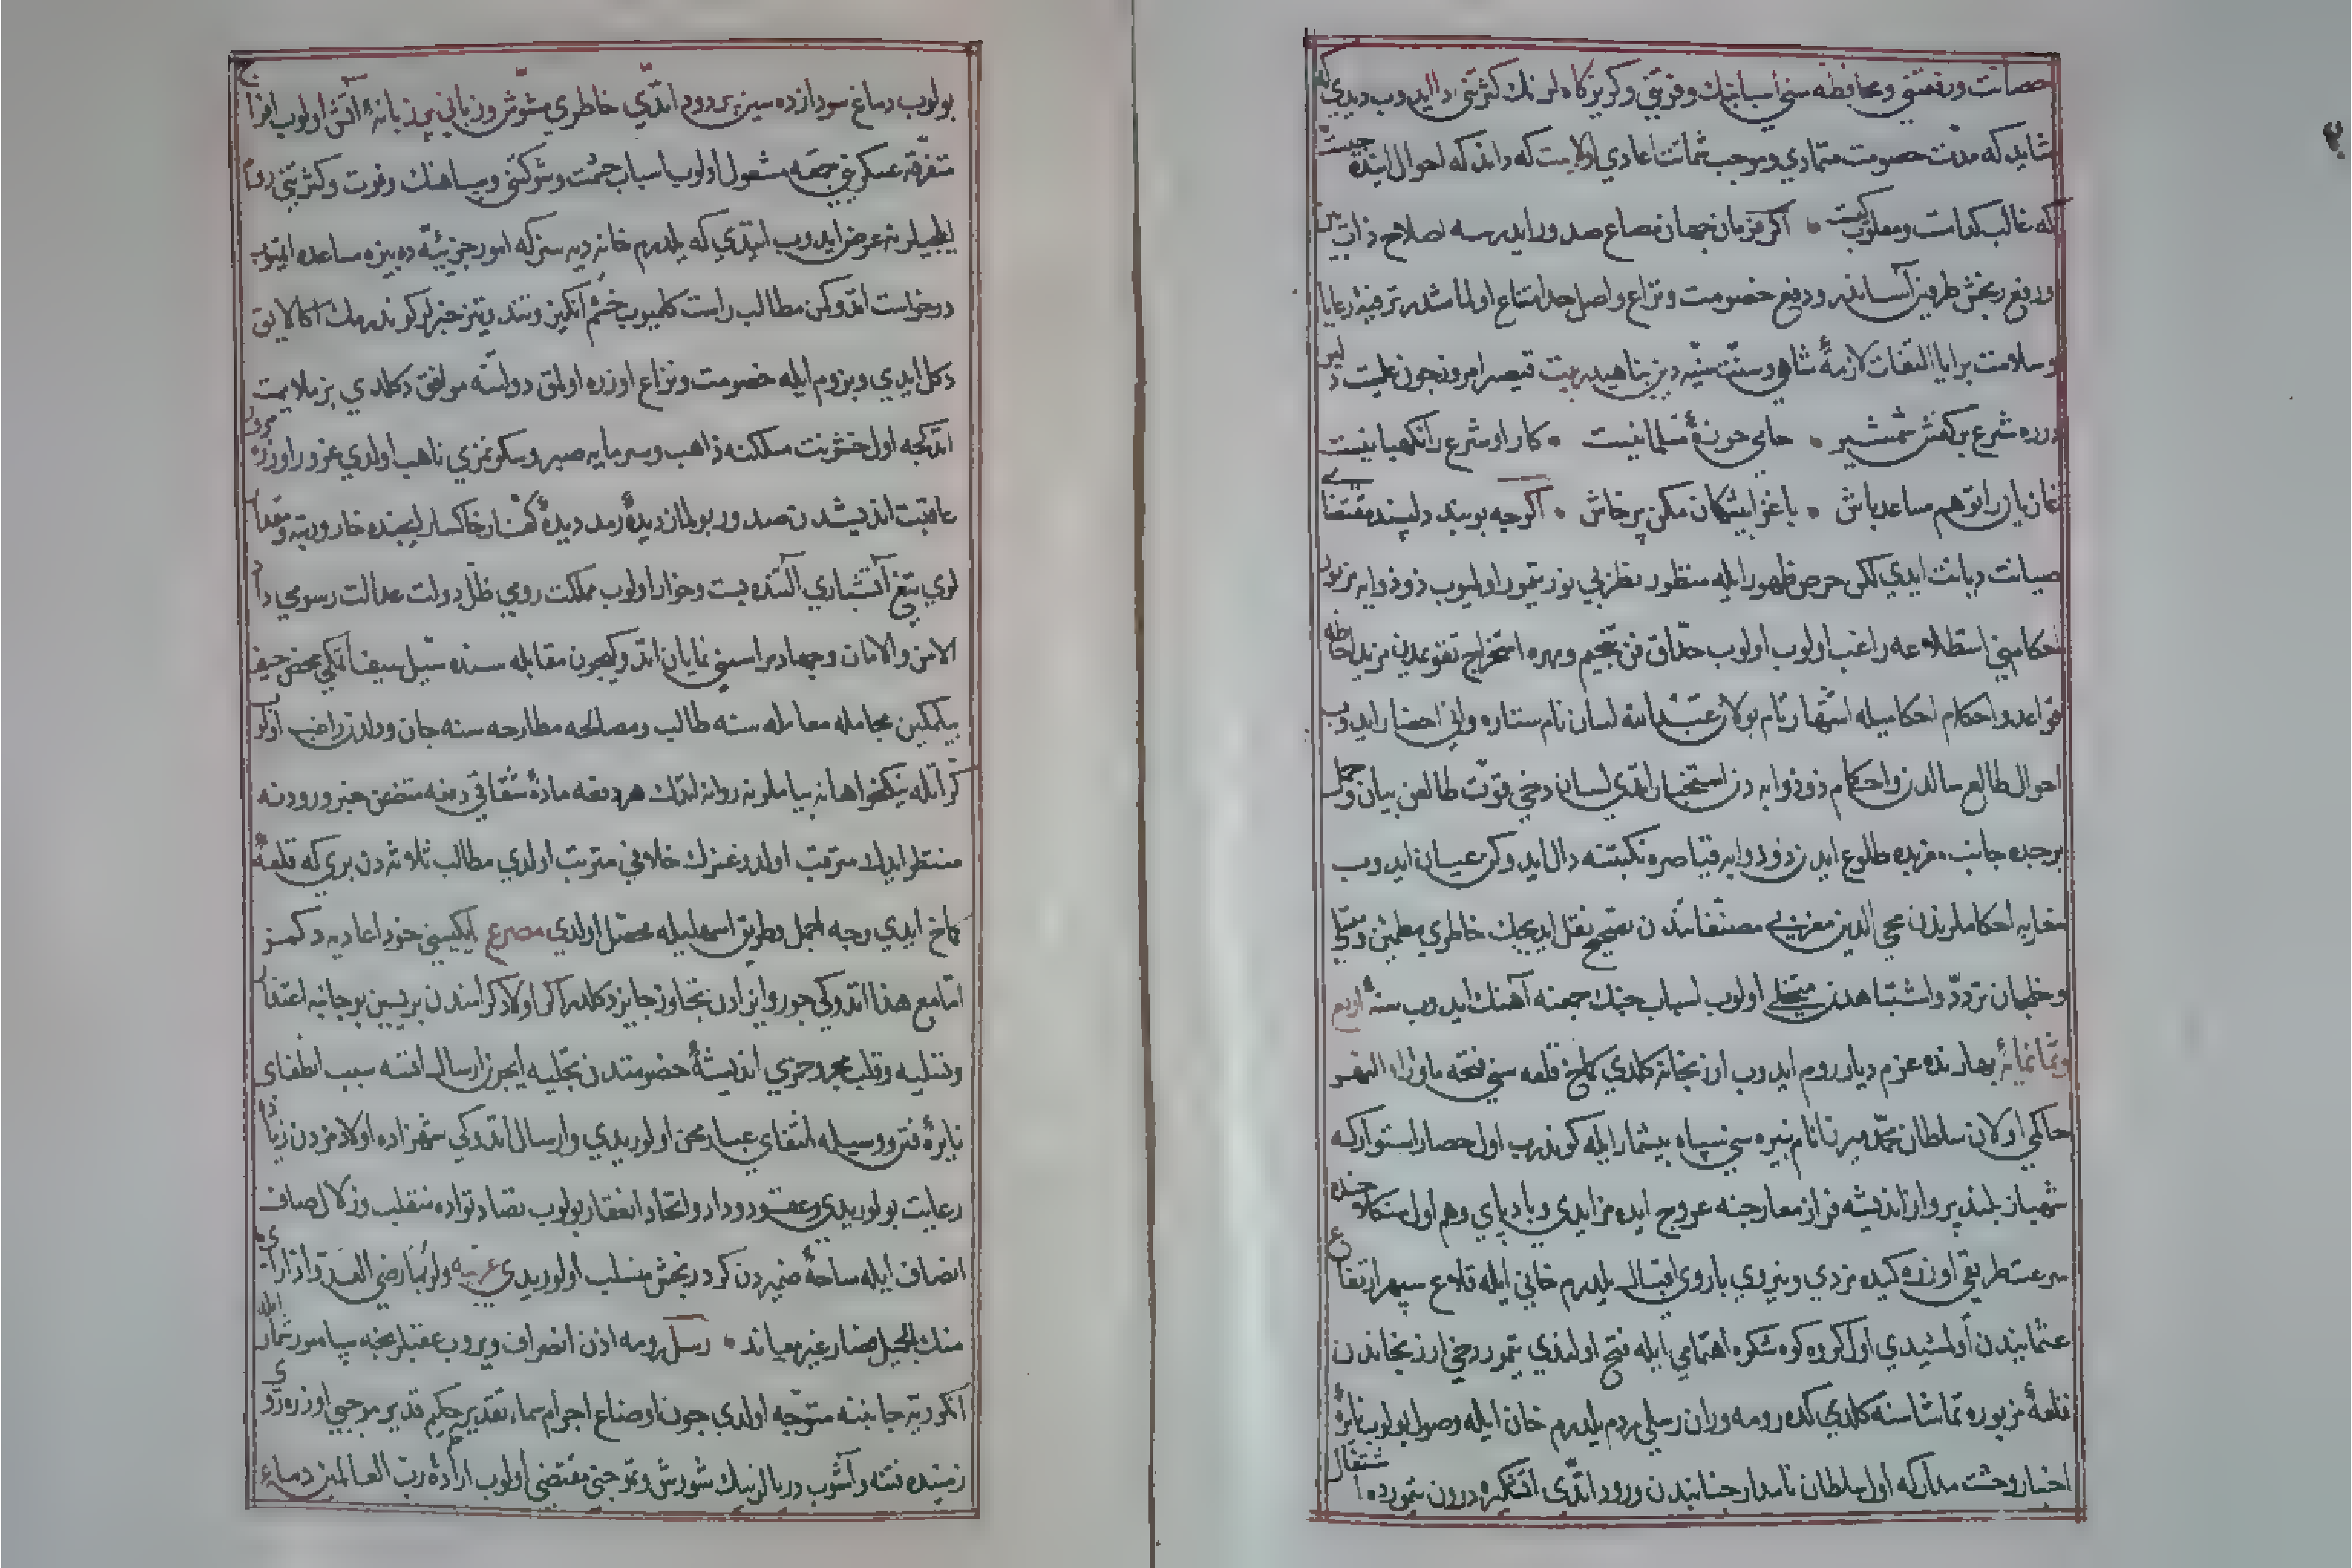 حصانت ورفعتنی ومحافظه سنی اسبابنك وفرتنی وكریزكاه لرنك كثرتنی دال ایدوب دیدی كه
شاید كه مدت خصومت متمادی وموجب شماتت اعادی اولا بیت كه داند كه احوال اینده چیست
كه غالب كدامست ومغلوب كیست اكر فرمان جهان مطاع صدور ایدرسه اصلاح ذات بین
ورفع رنجش طرفین آساندر ودفع خصومت ونزاع واصل حد امتناع اولمامشدر ترفیه رعایا
وسلامت برایا التفات لازمهٔ شاهی وسنت سنیهٔ دین پناهیدر بیت قیصر امروز چون علیست دلیر
در ره شرع بركفش شمشیر حامی حوزهٔ مسلمانیست كار او شرع را نكهبانیست
غازیان را تو هم مساعد باش با غزا پیشكان مكن پرخاش اكرچه بو پند دلپسند مقتضای
صیانت دیانت ایدی لكن حرص ظهور ایله منظور نظر بی نور تیمور اولمیوب ذو ذوابه مزبور
احكامنی استطلاعه راغب اولوب اولوب حذاق فن تنجیم ومهره استخراج تقویمدن مزید احاطه
قواعد واحكام احكامیله اشتهار تام بولان عبد الله لسان نام ستاره دانی احضار ایدوب
احوال طالع سالدن واحكام ذو ذوابه دن استخبار اتدی لسان دخی قوت طالعن بیان وحمل
برجده جانب مغربده طلوع ایدن ذو ذوابه قیاصره نكبتنه دال ایدوكن عیان ایدوب
مغاربه احكاملرندن محی الدین مغربی مصنفاتندن تصحیح نقل ایدیجك خاطری مطمئن
وخلجان تردد واشتباهدن متخلی اولوب اسباب جنك جمعنه آهنك ایدوب سنهٔ اربع
وثمانمائه بهارنده عزم دیار روم ایدوب ارزنجانه كلدی كماخ قلعه سنی فتحه ماوراء النهر
حاكمی اولان سلطان محمد میرزا نام نبیره سنی سپاه بیشمار ایله كوندرب اول حصار استوار كه
شهباز بلند پرواز اندیشه فراز معارجنه عروج ایده مز ایدی وبادپای وهم اول سنكلاخده
سرعت طریقی اوزره كیده مزدی ونیروی بازوی اقبال یلدرم خانی ایله قلاع سپهر ارتفاع
عثمانیدن اولمشیدی اول كروه كوه شكوه اهتمامی ایله فتح اولندی تیمور دخی ارزنجاندن
قلعهٔ مزبوره تماشاسنه كلدی كده رومه وران رسلی مردم یلدرم خان ایله وصول بولوب نایرهٔ
اخبار وحشت مدار كه اول سلطان نامدار جنابندن ورود اتدی آتشكیره درون تیمورده اشتعال
بولوب دماغ سودازده سین پر دود اتدی خاطری مشوش وزبانی پر زبانهٔ آتش اولوب
متفرقه عسكرینی جمعه مشغول اولوب اسباب حشمت وشوكتنی وسپاهنك وفرت وكثرتنی روم
ایلچیلرینه عرض ایدوب ایتدی كه یلدرم خانه دیه سز كه امور جزئیه ده بیزه مساعده ایتیوب
درخواست اتدوكن مطالب راست كلمیوب خشم انكیز وتند وتیز خبرلر كوندرمك اكا لایق
دكل ایدی وبزوم ایله خصومت ونزاع اوزره اولمق دولتنه موافق دكلدی بز ملایمت
اتدكجه اول خشونت مسلكنه ذاهب وسرمایه صبر وسكونمزی ناهب اولدی غرور اوزره
عاقبت اندیشدن صدور بولماز دیدهٔ رمد دیدهٔ كفار خاكسار ایچنده خار
تیغ آتشباری آلتنده پست وخوار اولوب مملكت رومی ظل دولت عدالت رسومی دار
الامن والامان وجهاد مراسمنی نمایان اتدوكیچون مقابله سنده سل سیف اتمكی محض حیف
بیلمكین مجامله معامله سنه طالب ومصالحه مطارحه سنه جان ودلدن راغب اولوب
كراتله نیكخواهانه پیاملرنه روانه اتدك هر دفعه مادهٔ شقاقی دفعه متضمن خبر ورودنه
منتظر ایدك مترقب اولدوغمزك خلافی مترتب اولدی مطالب ثلاثه دن بری كه قلعهٔ
كماخ ایدی وجه اجمل وطریق اسهل ایله محصل اولدی مصرع ایكیسنی خود اعاده دكمز
اما مع هذا اتدوكی جور وایذادن تجاوز جایز دكلدر اكر اولاد كرامندن بریسین بو جانبه اعتذار
وتسلیه وقلب مجروحمزی اندیشهٔ خصومتدن تجلیه ایچون ارسال اتسه سبب انطفای
نایرهٔ فتن ووسیله انتفای غبار محن اولوریدی وارسال اتدوكی شهزاده اولادمزدن زیاده
رعایت بولوریدی وعقود وداد واتحاد انعقاد بولوب تضاد تواده منقلب وزلال صاف
انصاف ایله ساحهٔ ضمیردن كرد رنجش منسلب اولوریدی عربیه ولربما رضی العدو اذا رای
منك الجمیل فصار غیر معاند رسل رومه اذن انصراف ویروب عقبلرنجه سپاه مور شمار ایله
انكوریه جانبنه متوجه اولدی چون اوضاع اجرام سماء تقدیر حكیم قدیر موجبی اوزره روی
زمینده فتنه وآشوب دریالرینك شورش وتموجنی مقتضی اولوب ارادهٔ رب العالمین دماء